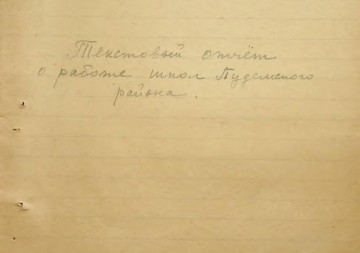 Текстовый отчёт
о работе школ Пудемского
района.